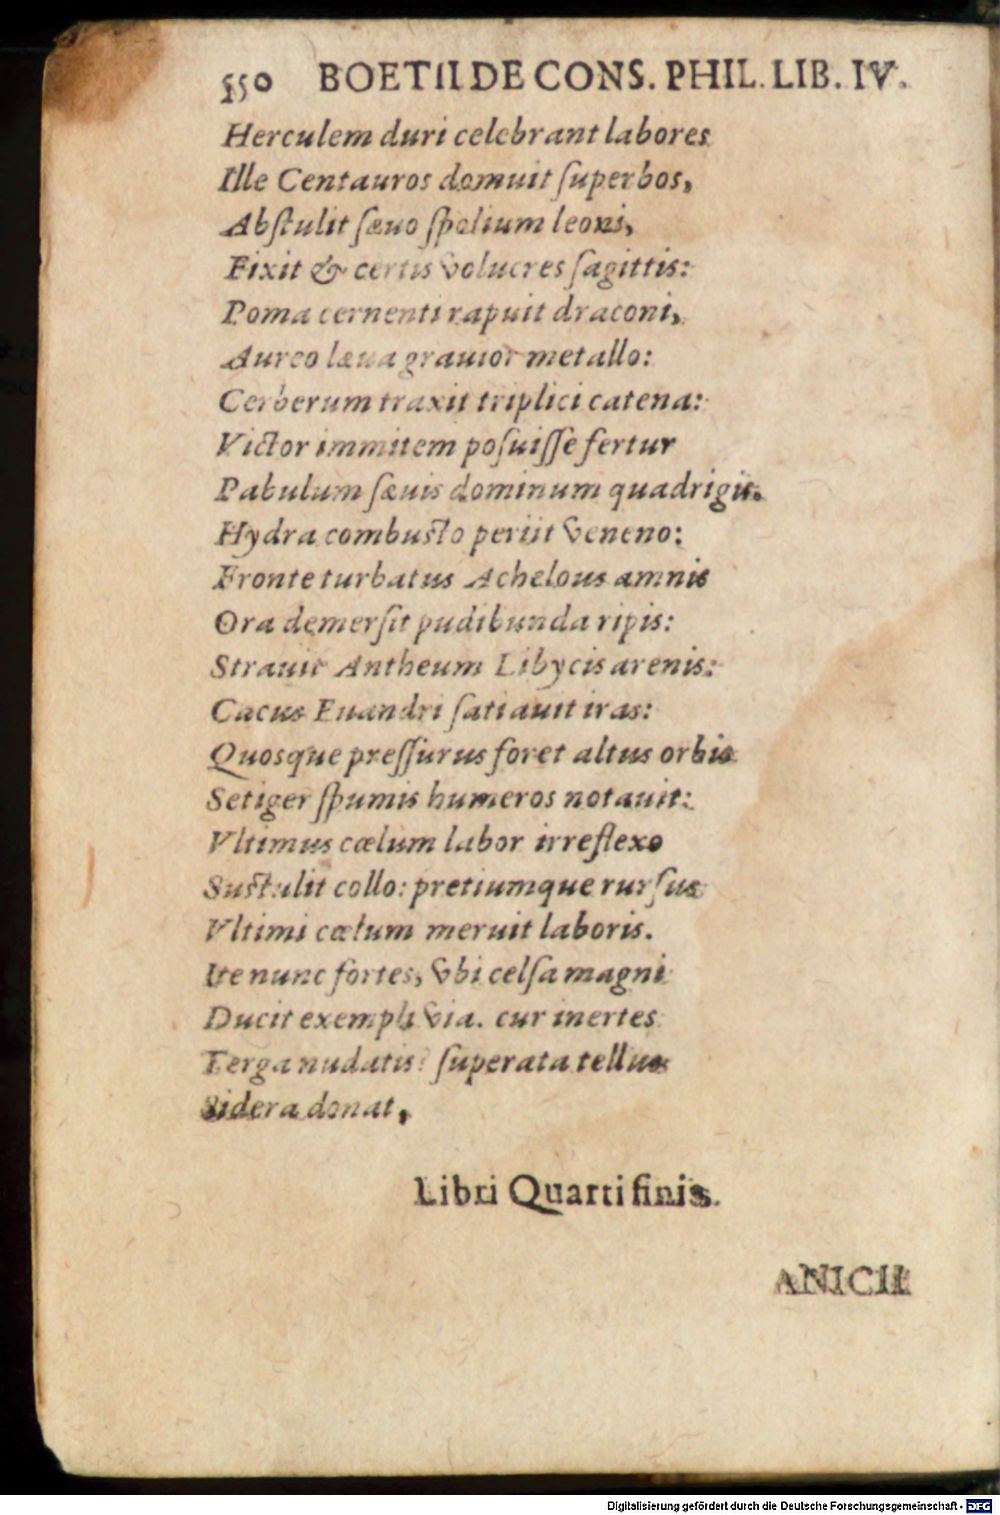 350 BOETII DE CONS. PHIL. LIB. IV.
Herculem duri celebrant labores
Ille Centauros domuit ſuperbos,
Abſtulit ſæuo ſpolium leoni,
Fixit & certis volucres ſagittis:
Poma cernenti rapuit draconi,
Aureo læua grauior metallo:
Cerberum traxit triplici catena:
Victor immitem poſuiſſe fertur
Pabulum ſæuis dominum quadrigis.
Hydra combuſto periit veneno:
Fronte turbatus Achelous amnis
Ora demerſit pudibunda ripis:
Strauit Antheum Libycis arenis:
Cacus Euandri ſatiauit iras:
Quosque preſſurus foret altus orbis
Setiger ſpumis humeros notauit:
Vltimus cœlum labor irreflexo
Suſtulit collo: pretiumque rurſus
Vltimi cœlum meruit laboris.
Ite nunc fortes, vbi celſa magni
Ducit exempli via. cur inertes
Terga nudatis? ſuperata tellus
Sidera donat,
Libri Quarti finis.
ANICII
Digitalisierung gefördert durch die Deutsche Forschungsgemeinschaft - DFG